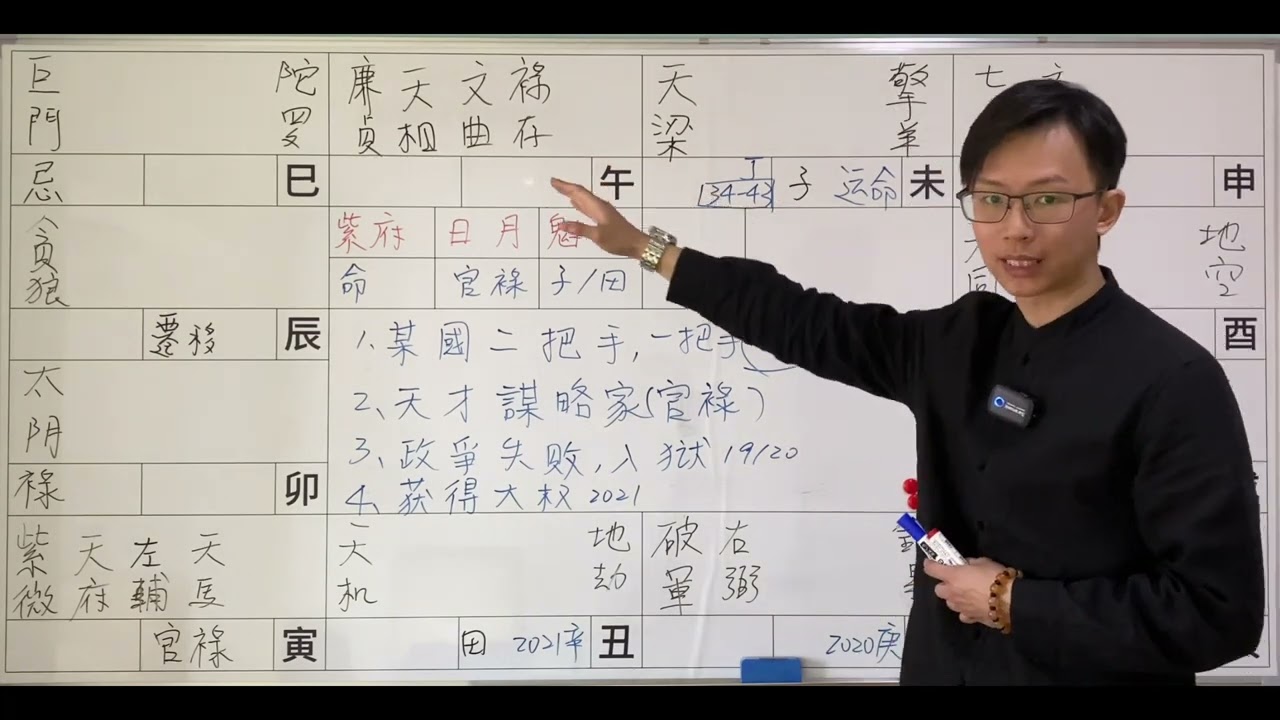 巨 陀
門 羅
忌 巳
廉 天 文 祿
貞 相 曲 存
午
天 擎
梁 羊
丁
34-43 子 运命 未
七 文
申
貪
狼
遷移 辰
紫府 日 月 魁
命 官祿 子/田
地
同 空
酉
1、某國二把手,一把手
2、天才謀略家(官祿)
3、政爭失敗,入獄19/20
4、获得大权2021
太
阴
祿 卯
紫 天 左 天
微 府 輔 馬
官祿 寅
天 地
机 劫
田 2021辛 丑
破 右
軍 弼
2020庚